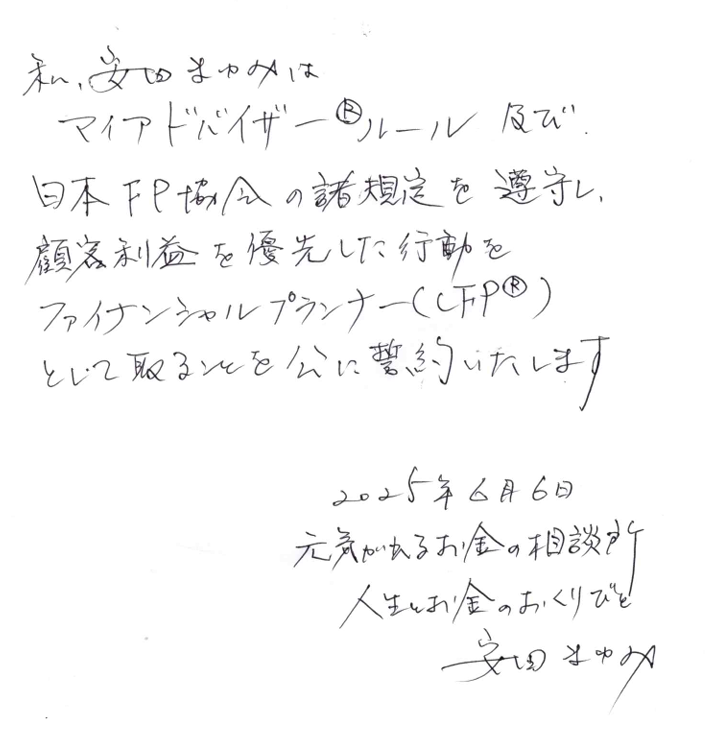 私、安田まゆみは
マイアドバイザー®ルール 及び
日本FP協会の諸規定を遵守し、
顧客利益を優先した行動を
ファイナンシャルプランナー(CFP®)
として取ることを公に誓約いたします
2025年6月6日
元気が出るお金の相談所
人生とお金のおくりびと
安田まゆみ